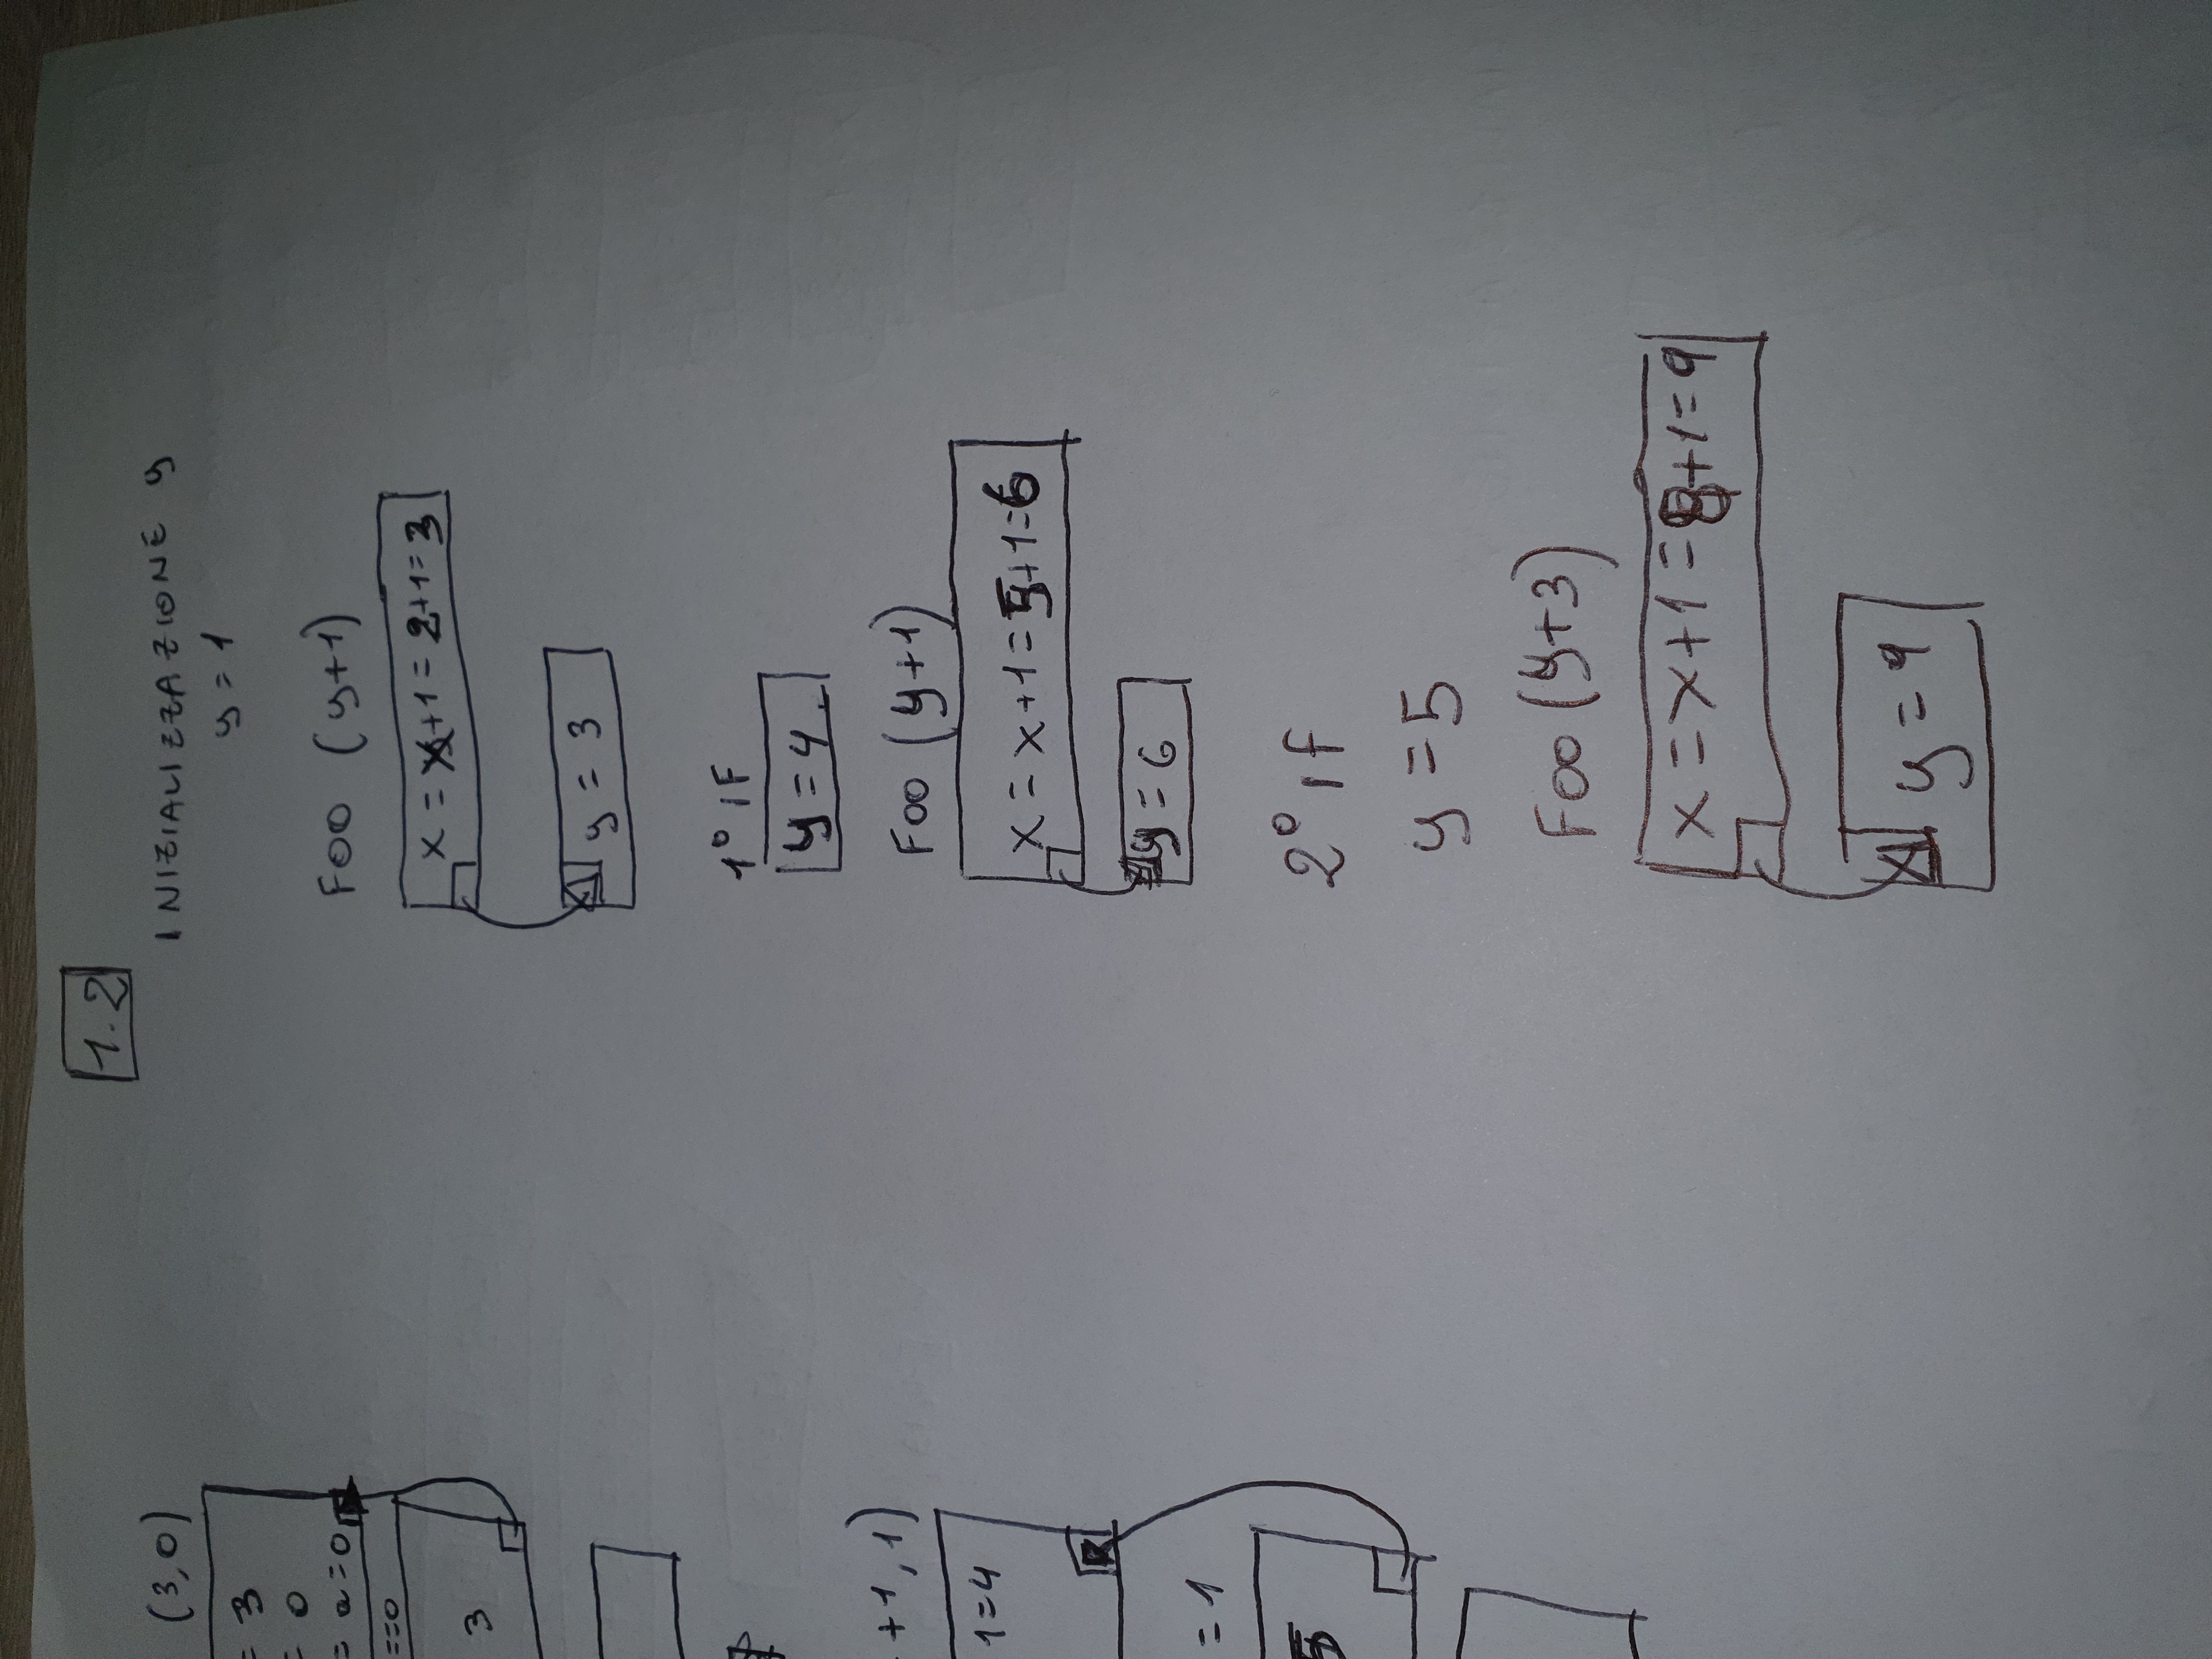 (3,0)
= 3
= 0
= a=0
==0
3
+1,1)
1=4
= 1
5
1.2
INIZIALIZZAZIONE y
y = 1
FOO (y+1)
x = x+1 = 2+1=3
y = 3
1° IF
y = 4
FOO (y+1)
x = x+1 = 5+1=6
y = 6
2° IF
y = 5
FOO (y+3)
x = x+1 = 8+1=9
y = 9